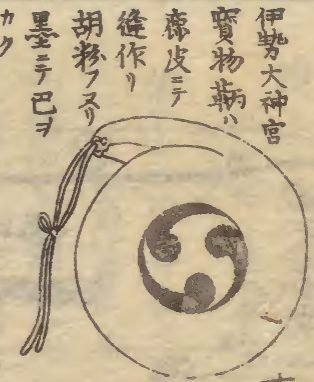 伊勢大神宮
寳物鞆ハ
鹿皮ニテ
縫作リ
胡粉ヲヌリ
墨ニテ巴ヲ
カク